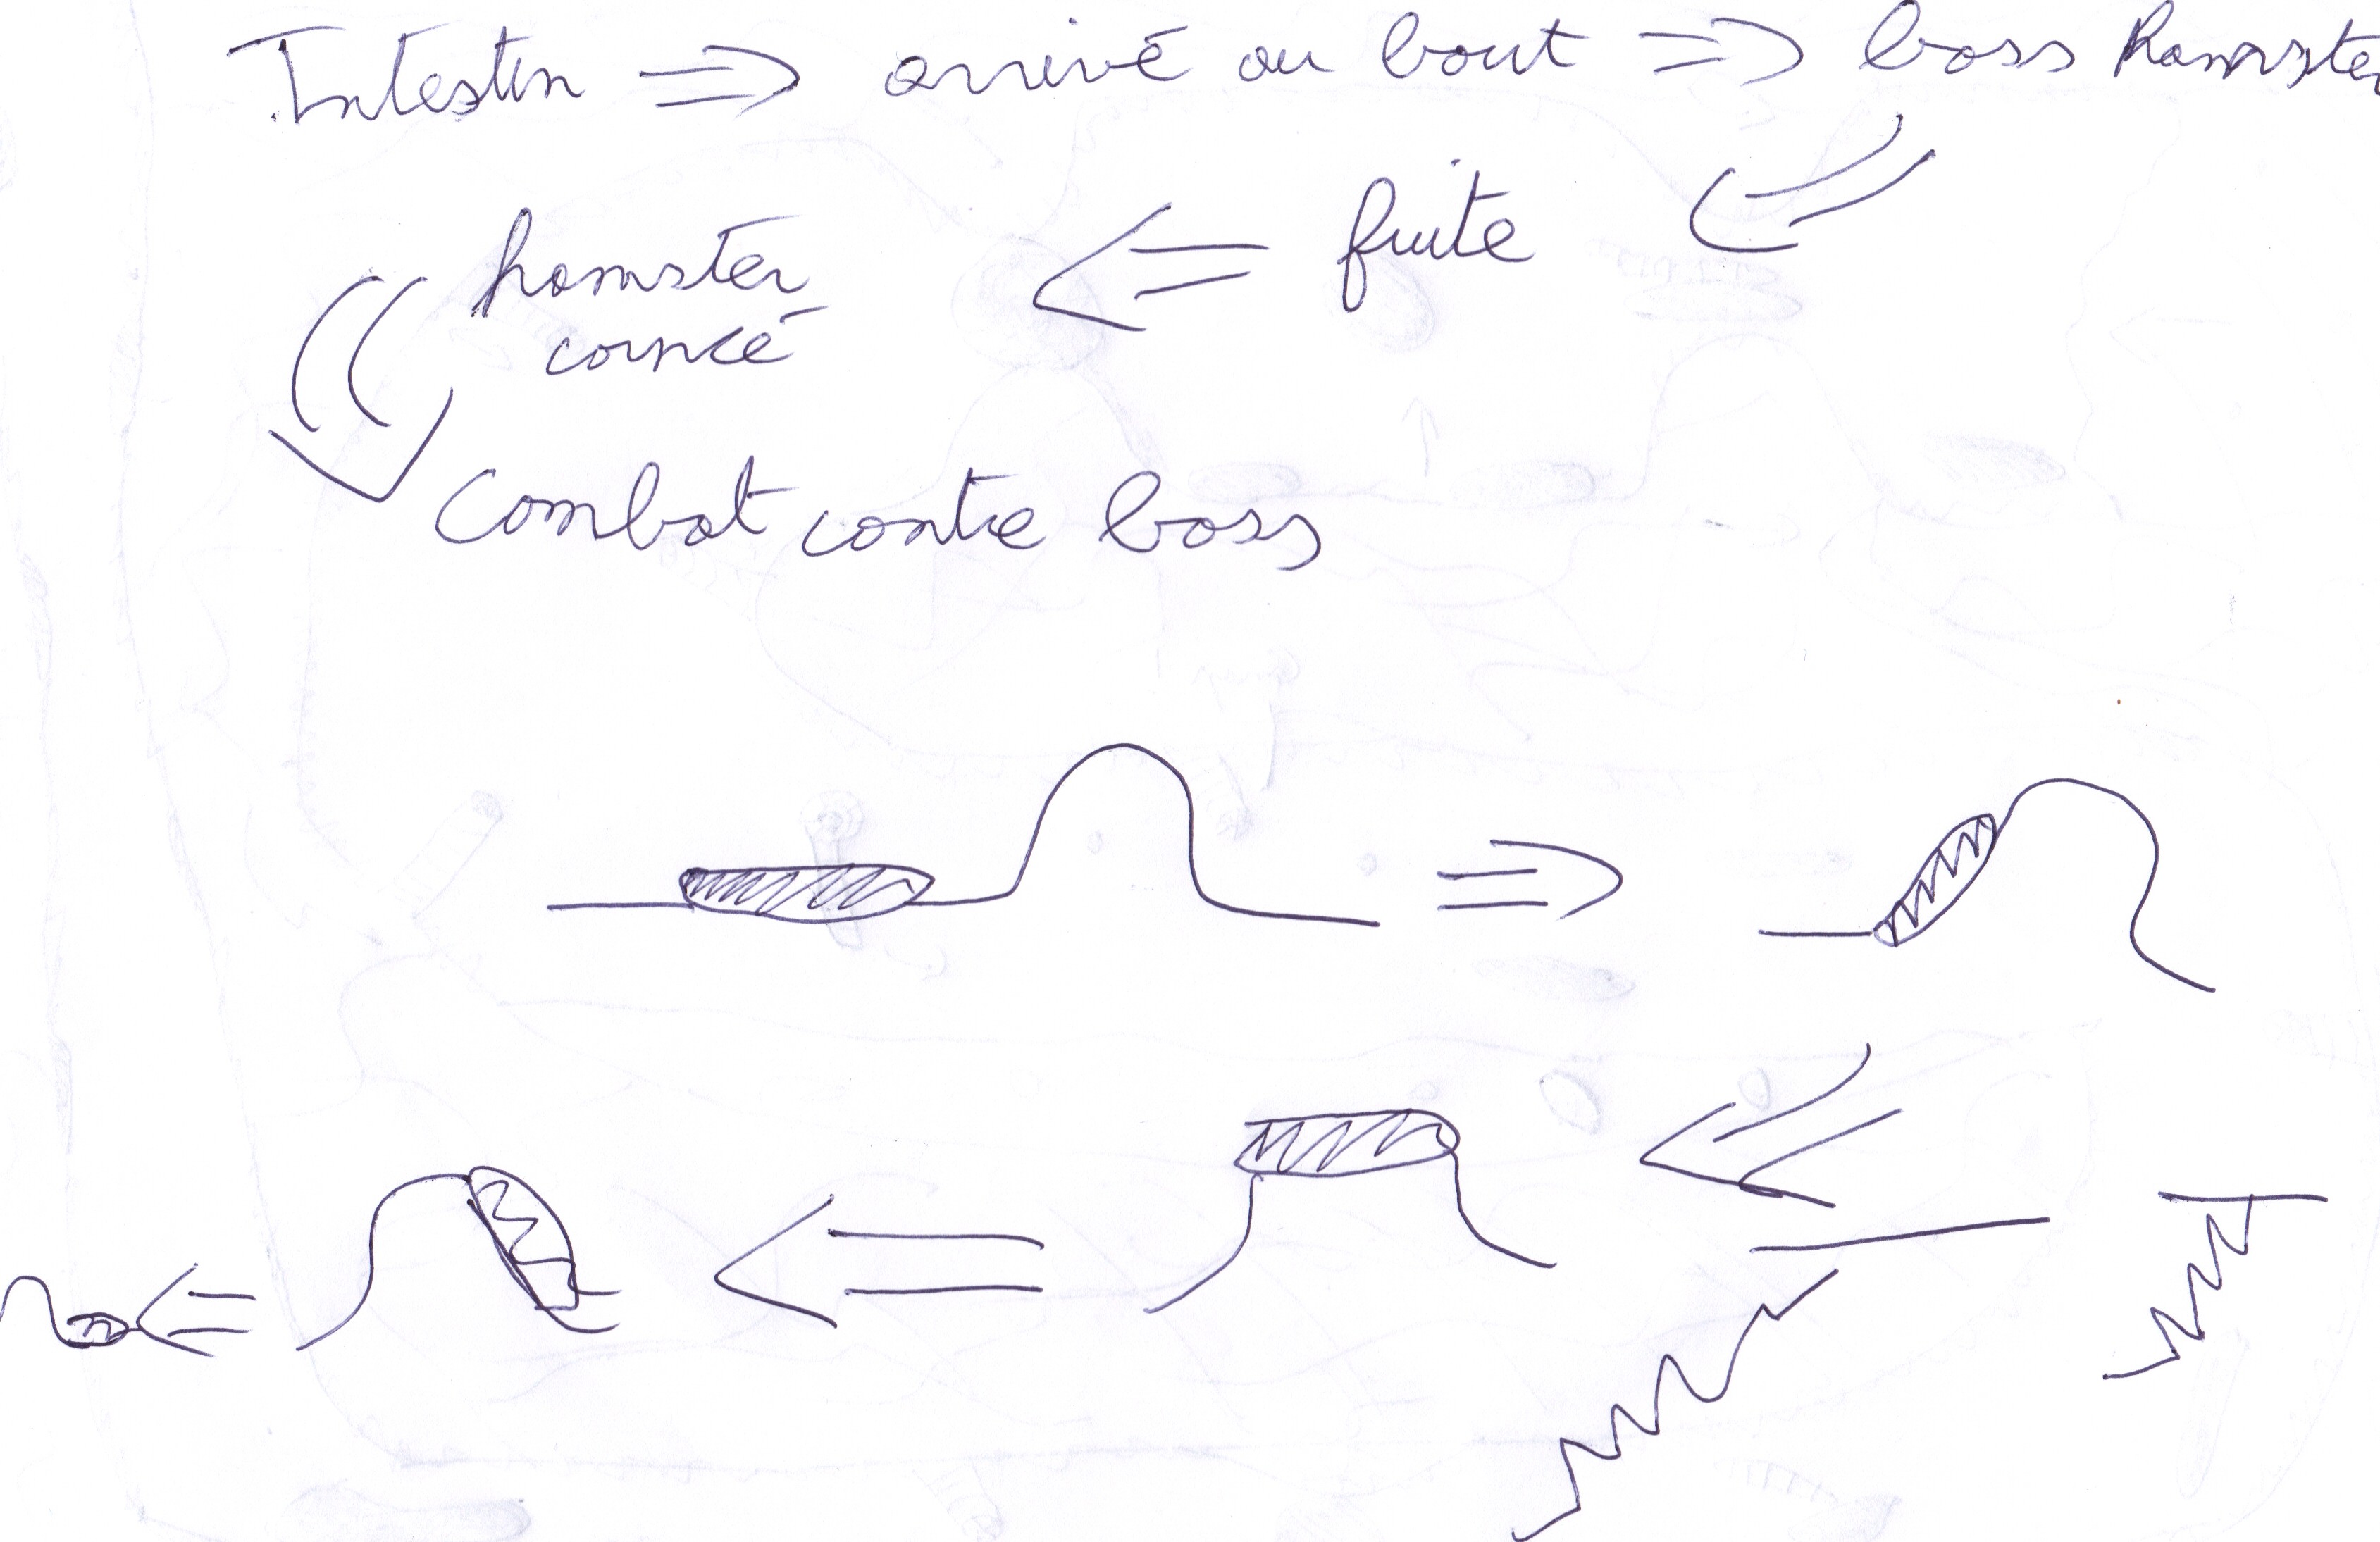 Intestin => arrivé au bout => boss hamster
<= fuite
hamster
coincé
Combat contre boss